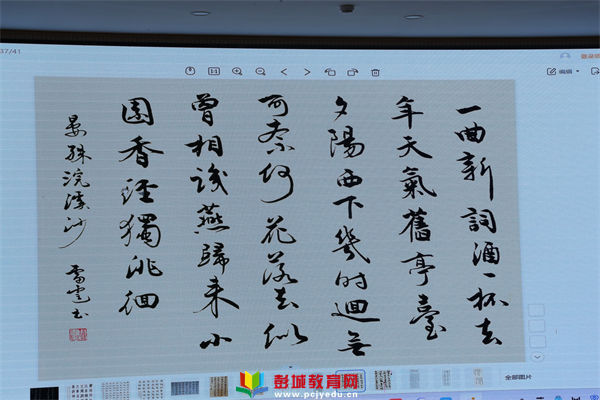 37/41
编辑
一曲新詞酒一杯去
年天氣舊亭臺
夕陽西下幾时迴無
可奈何花落去似
曾相識燕歸来小
園香徑獨徘徊
晏殊浣溪沙
全部图片
彭城教育网
www.pcjyedu.cn